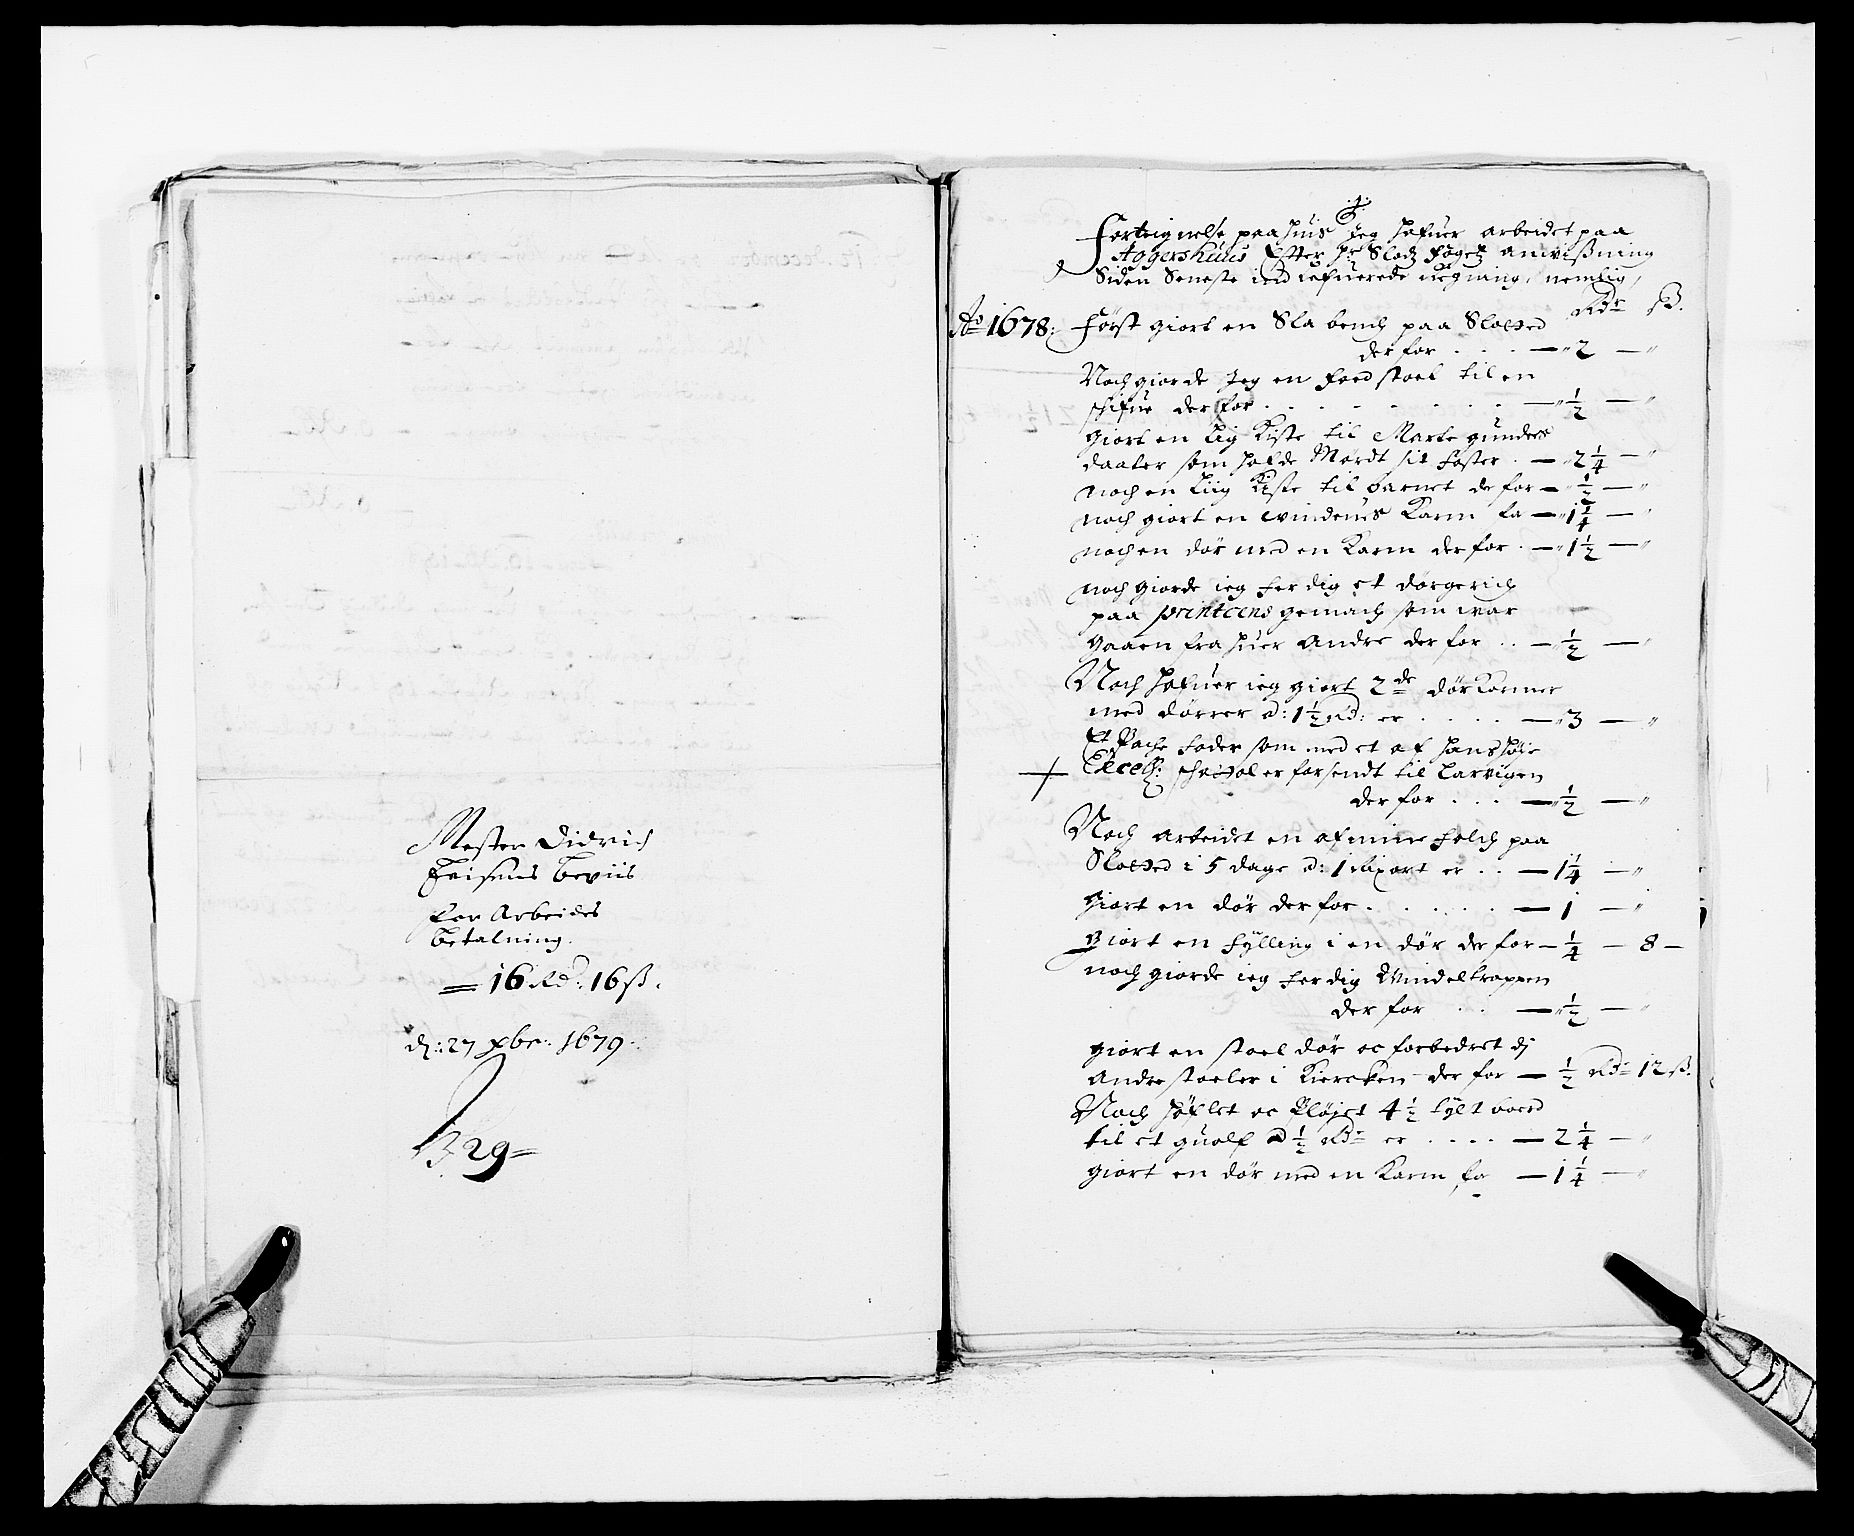 Mester Didrich
Frisens beviis
for Arbeides
betalning.
= 16 Rd: 16 ß.
dj: 27 xbr: 1679.
29 =
.1.
Forteignelse paa huis Jeg hafuer arbeidet paa
Aggershuus Efter Hr Slodz fogetz anvißning
Siden Seneste ind lefuerede Regning, nemlig,
Rdr ß.
Ao 1678: Först giort en Sla bench paa Slotted
der for . . . — 2 — "
Noch giorde Jeg en foed stoel til en
schifue der for . . . — ½ — "
giort en Lig Kiste til Marte gunders
daater som hafde Mørdt sit foster . — 2¼ — "
noch en Liig Kiste til barnet der for — ½ — "
noch giort en windeues Karm for — 1¼ — "
noch en dör med en Karm der for . — 1½ — "
noch giorde ieg ferdig et dörgericht
paa printzens gemach som war
gaaen fra huer Andre der for . . — ½ — "
Noch hafuer ieg giort 2de dör Karmer
med dörrer a: 1½ Rd: er . . . . — 3 — "
Et foder som med et af hans höje
Excell: er forsendt til Larvigen
der for . . . — ½ — "
Noch arbeidet en af mine folch paa
Slotted i 5 dage a: 1 Rixort er . . — 1¼ — "
giort en dör der for . . . . . . — 1 — "
Giort en fylling i en dör der for — ¼ — 8 —
noch giorde ieg ferdig Windeltrappen
der for . . — ½ — "
giort en stoel dör oc forbedret dj
Andre stoeler i Kiercken der for — ½ Rd: 12 ß.
Noch höflet oc Plöjet 4½ tylt boerd
til et gualf a ½ Rd: er . . . . — 2¼ — "
giort en dör med en Karm for — 1¼ — "